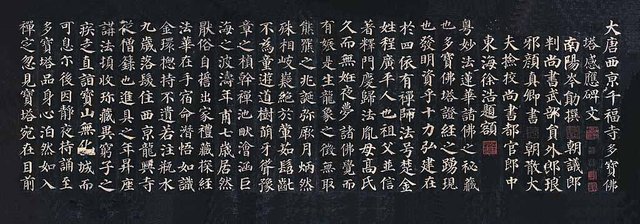 大唐西京千福寺多寶佛
塔感應碑文
南陽岑勛撰 朝議郎
判尚書武部員外郎琅
邪顏真卿書 朝散大
夫撿挍尚書都官郎中
東海徐浩題額
粵妙法蓮華諸佛之秘藏
也多寶佛塔證經之踴現
也發明資乎十力弘建在
於四依有禪師法號楚金
姓程廣平人也祖父並信
著釋門慶歸法胤母高氏
久而無妊夜夢諸佛覺而
有娠是生龍象之徵無取
熊羆之兆誕弥厥月炳然
殊相岐嶷絕於葷茹髫齔
不為童遊道樹萌牙聳豫
章之楨幹禪池畎澮涵巨
海之波濤年甫七歲居然
猒俗自誓出家禮藏探經
法華在手宿命潛悟如識
金環總持不遺若注瓶水
九歲落髮住西京龍興寺
從僧籙也進具之年昇座
講法頓收珍藏異窮子之
疾走直詣寶山無化城而
可息尔後因靜夜持誦至
多寶塔品身心泊然如入
禪定忽見寶塔宛在目前